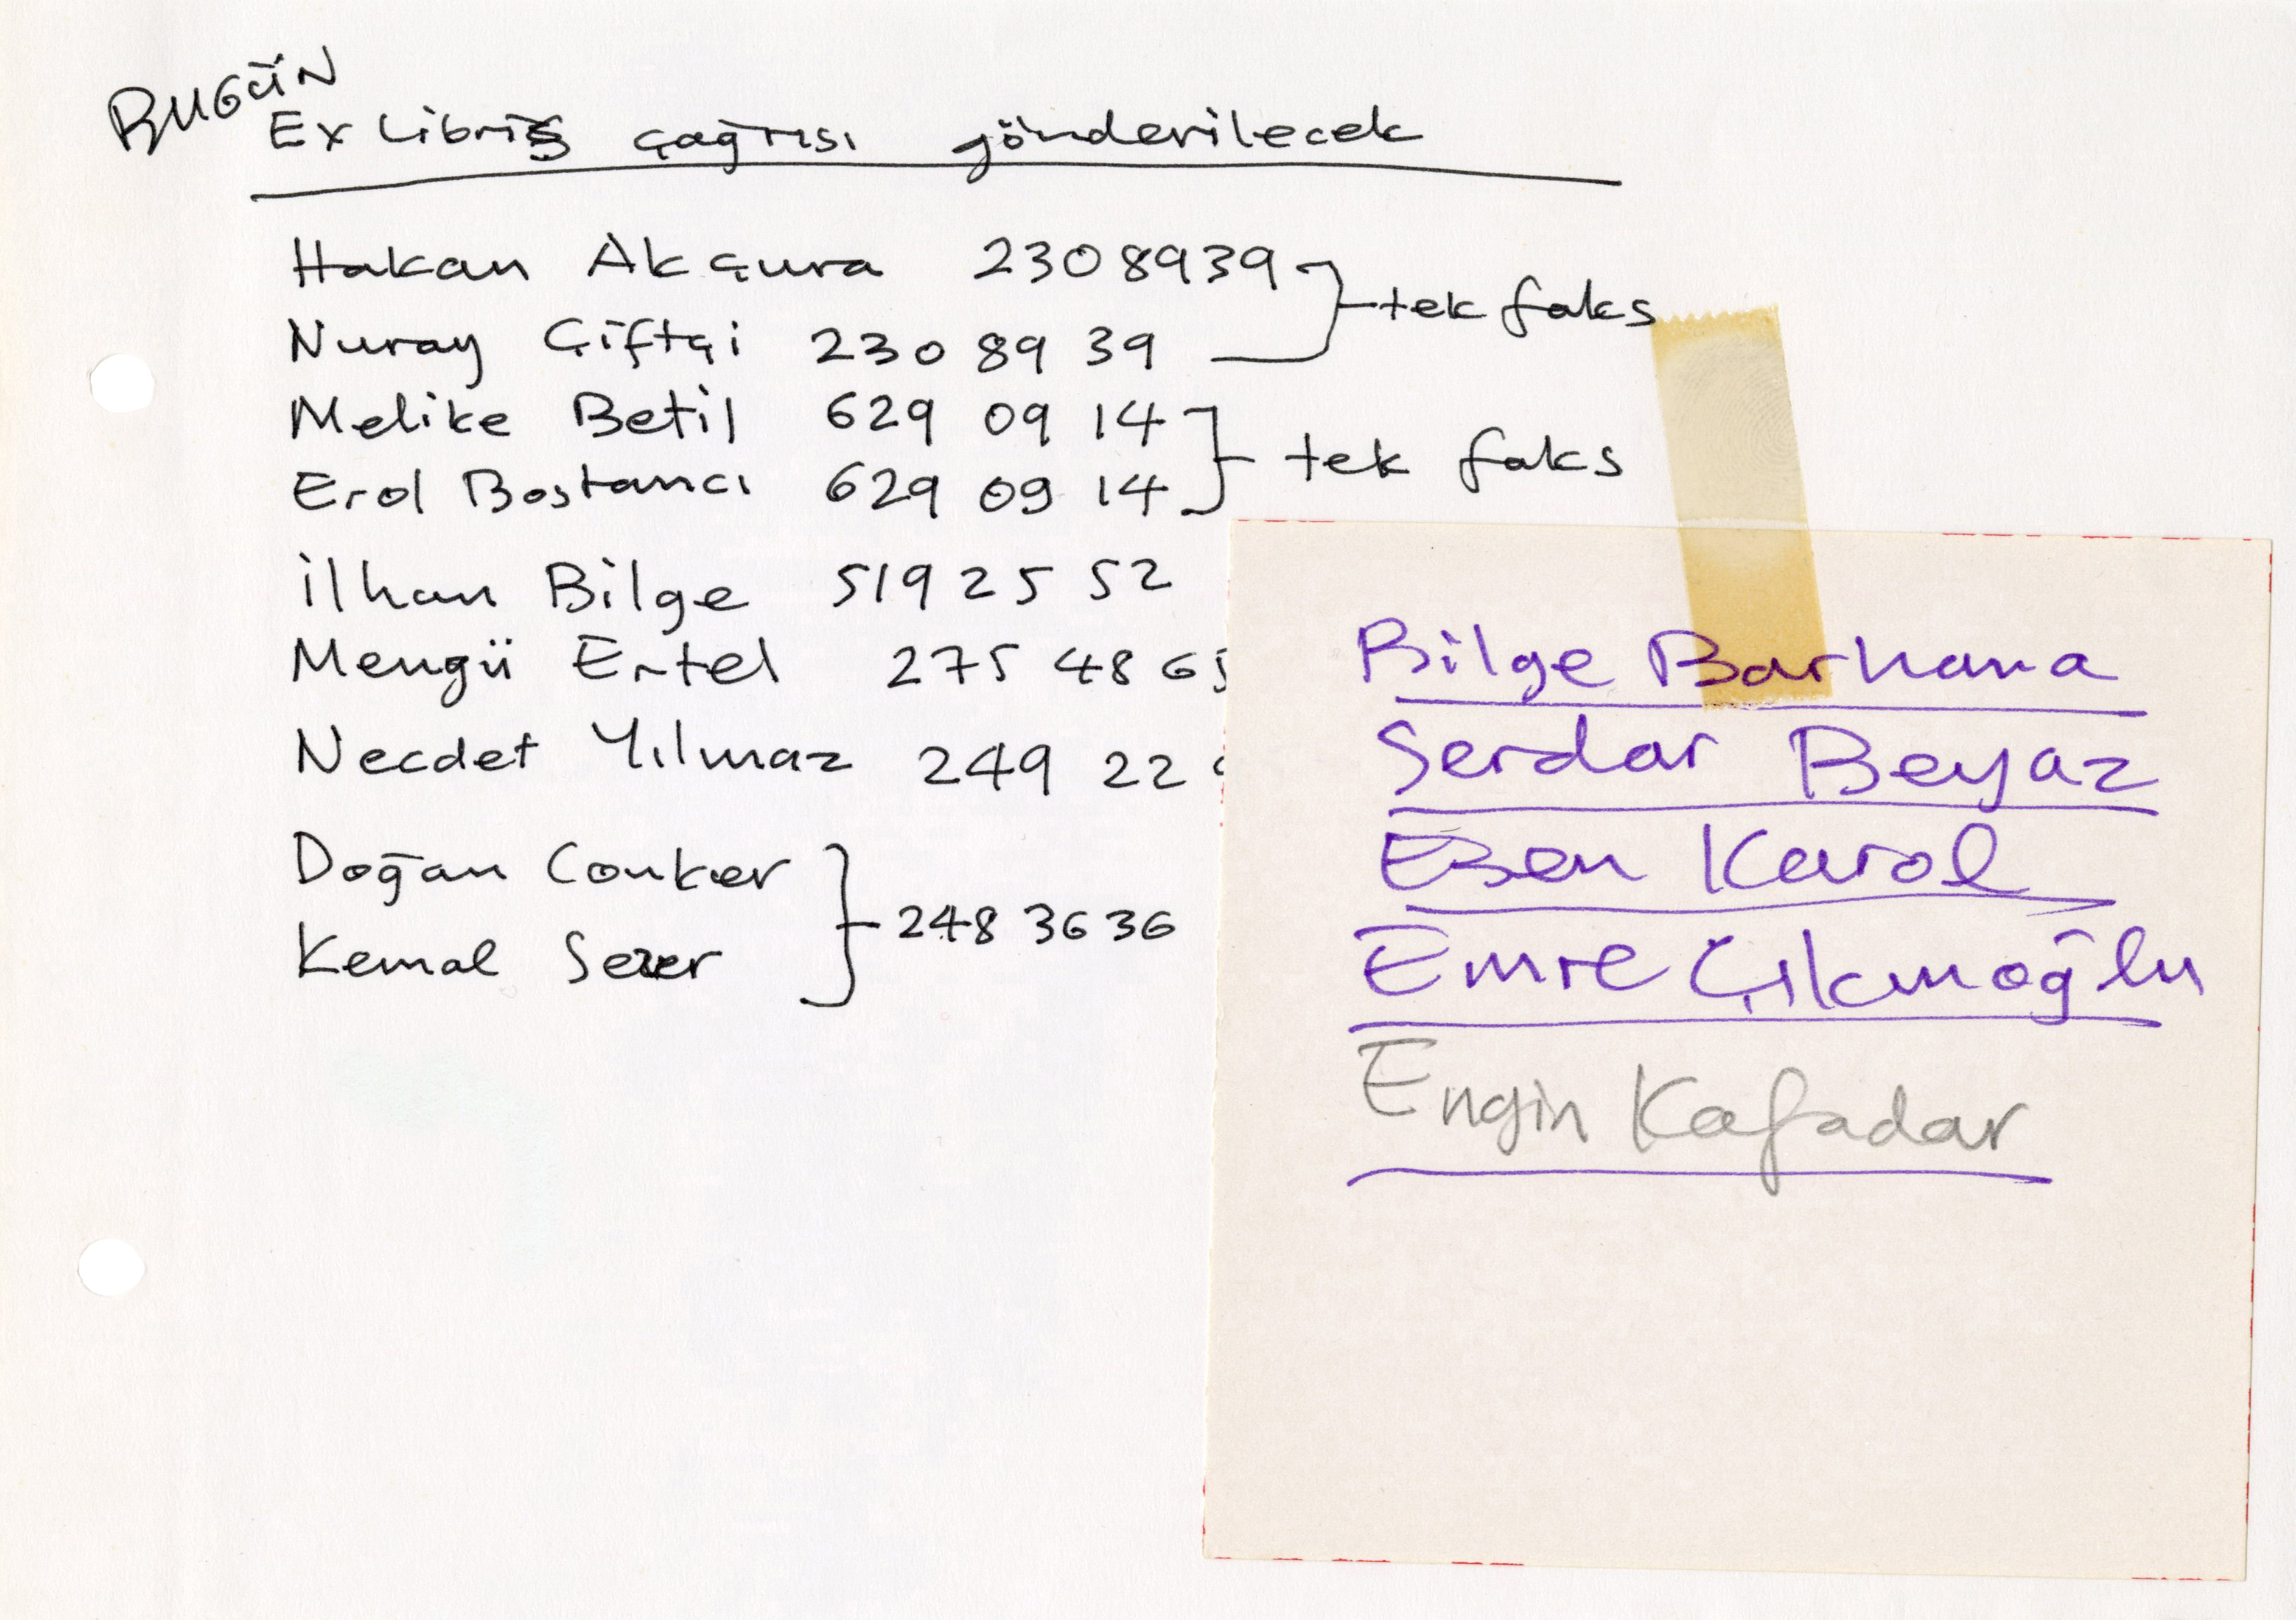 BUGÜN
Ex Libris çağrısı gönderilecek
Hakan Akçura 2308939
tek faks
Nuray Çiftçi 230 89 39
Melike Betil 629 09 14
tek faks
Erol Bostancı 629 09 14
İlhan Bilge 519 25 52
Mengü Ertel 275 48 65
Necdet Yılmaz 249 22
Doğan Conker
248 36 36
Kemal Sezer
Bilge Barhana
Serdar Beyaz
Esen Karol
Emre Çıkınoğlu
Engin Kafadar